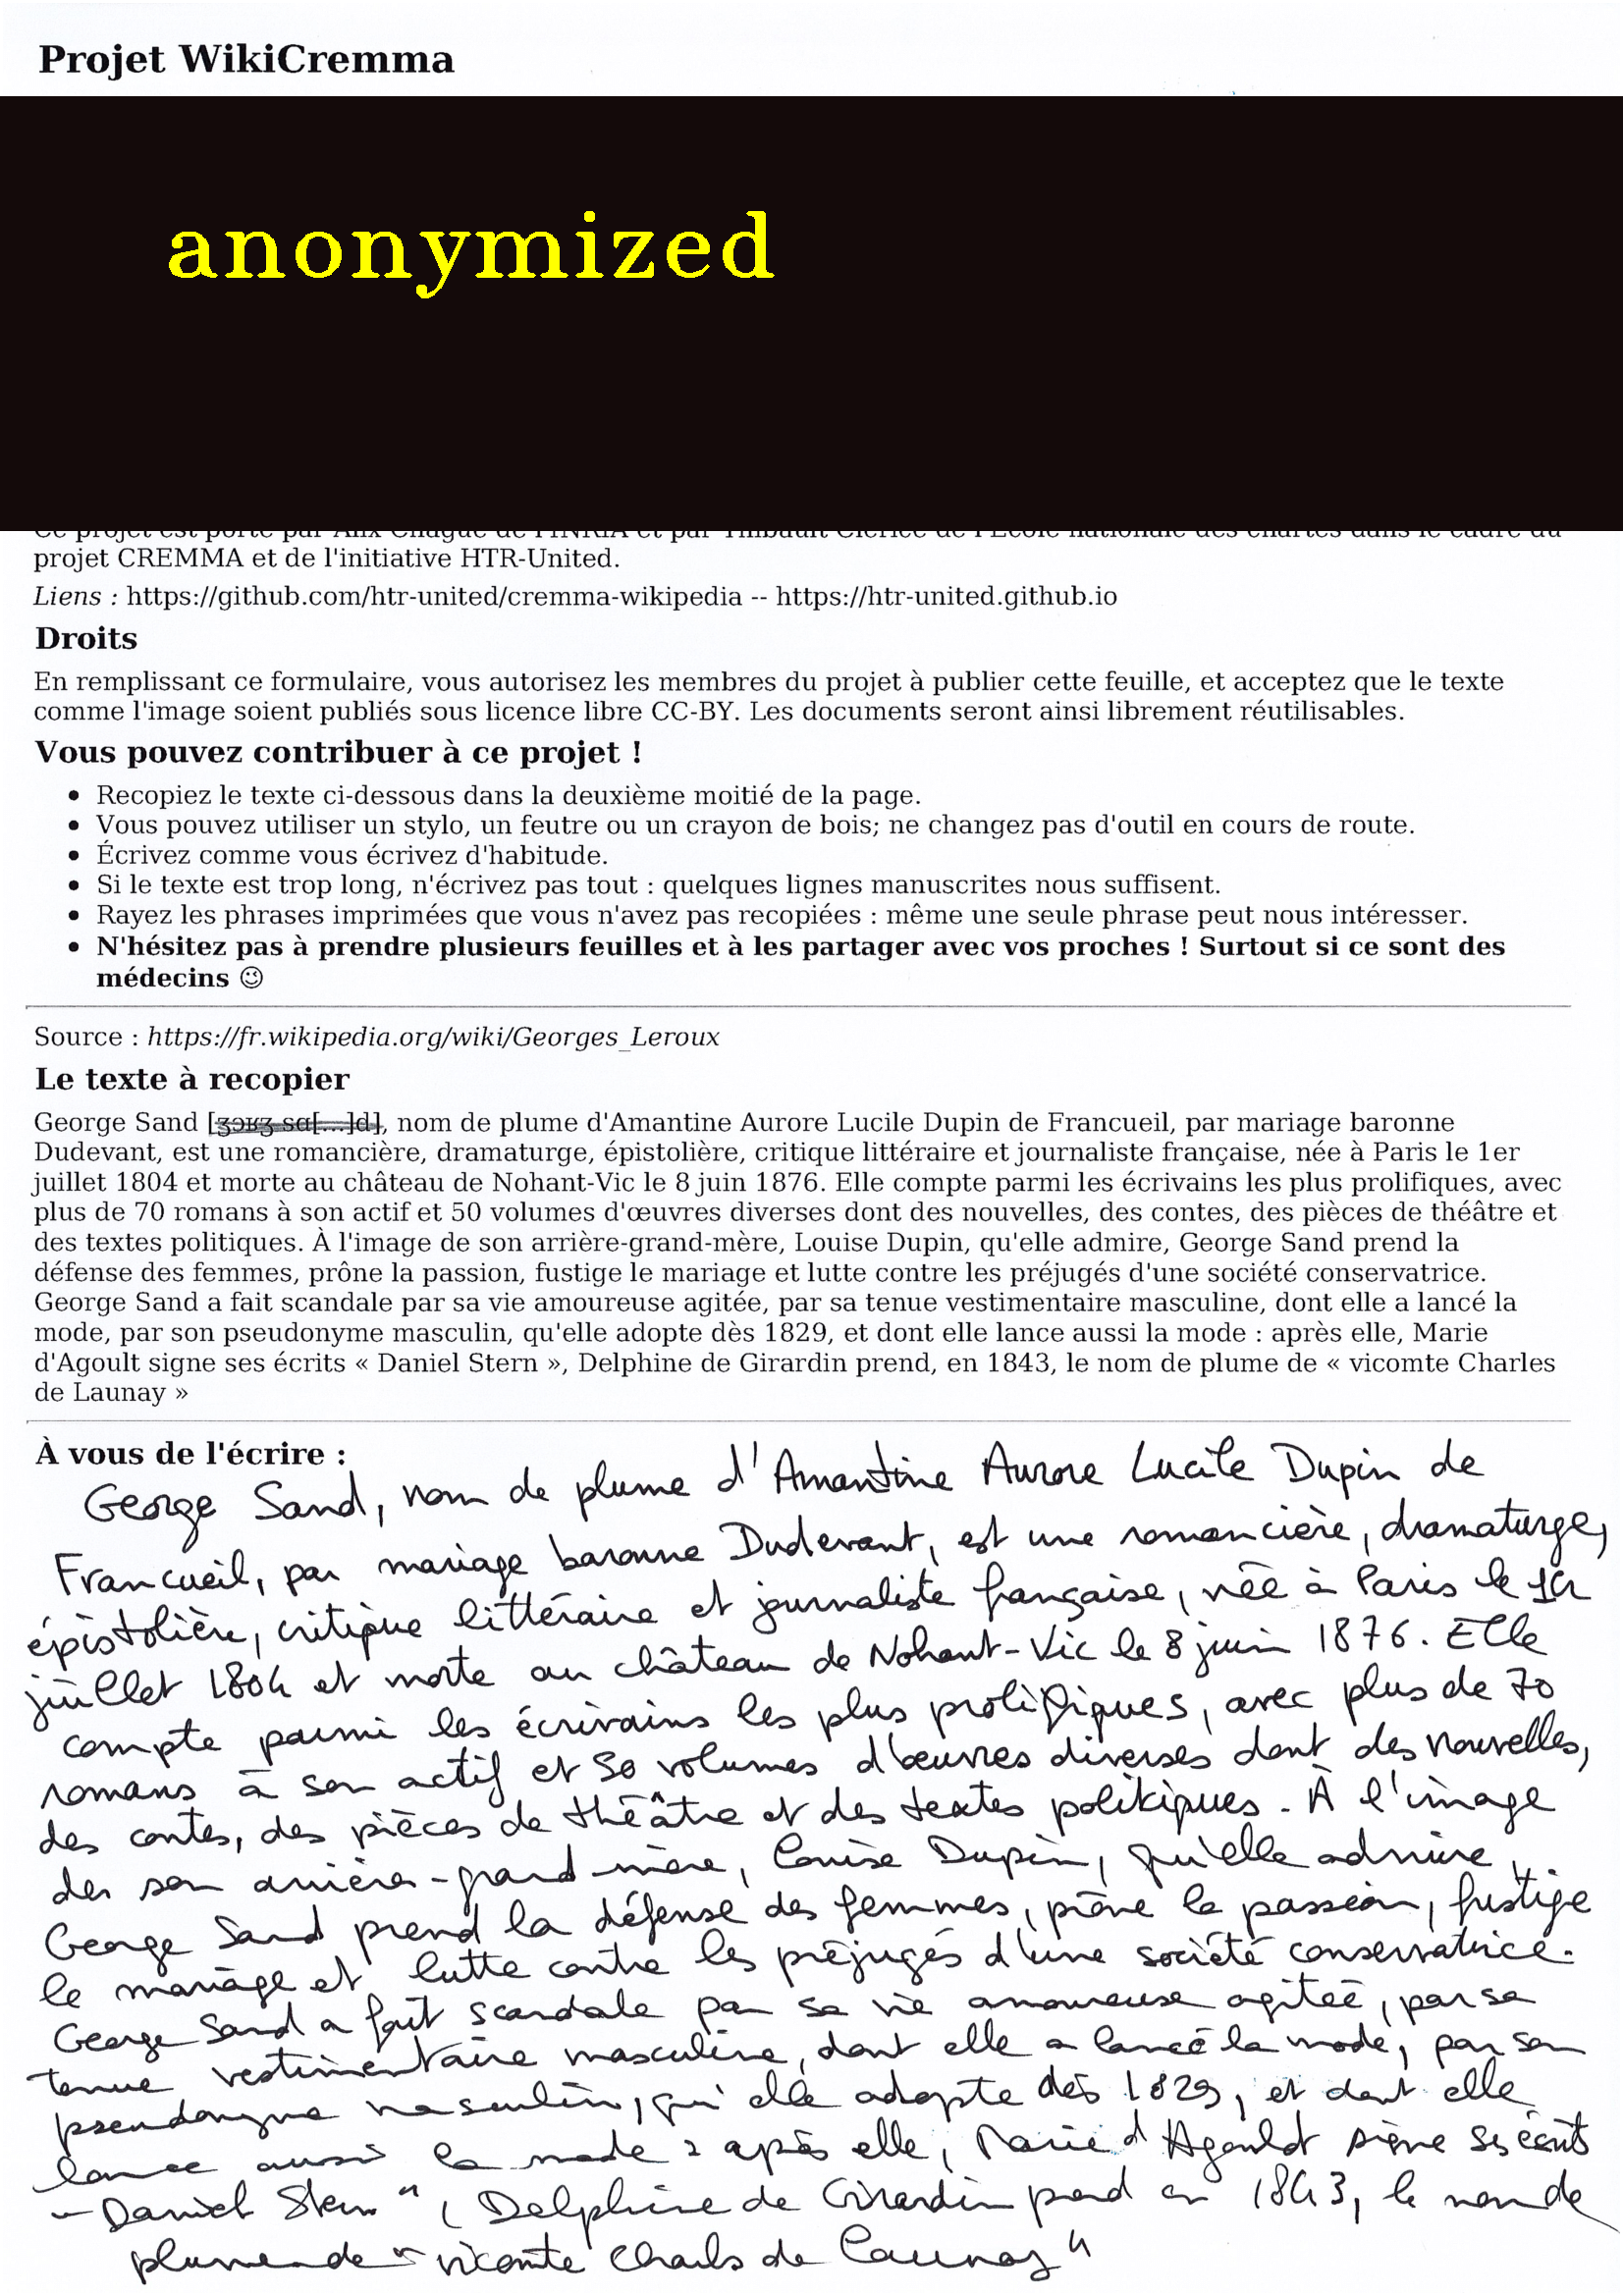 Projet WikiCremma
anonymized
Ce projet est porté par Alix Chagué de l'INRIA et par Thibault Clérice de l'École nationale des chartes dans le cadre du
projet CREMMA et de l'initiative HTR-United.
Liens : https://github.com/htr-united/cremma-wikipedia -- https://htr-united.github.io
Droits
En remplissant ce formulaire, vous autorisez les membres du projet à publier cette feuille, et acceptez que le texte
comme l'image soient publiés sous licence libre CC-BY. Les documents seront ainsi librement réutilisables.
Vous pouvez contribuer à ce projet !
• Recopiez le texte ci-dessous dans la deuxième moitié de la page.
• Vous pouvez utiliser un stylo, un feutre ou un crayon de bois; ne changez pas d'outil en cours de route.
• Écrivez comme vous écrivez d'habitude.
• Si le texte est trop long, n'écrivez pas tout : quelques lignes manuscrites nous suffisent.
• Rayez les phrases imprimées que vous n'avez pas recopiées : même une seule phrase peut nous intéresser.
• N'hésitez pas à prendre plusieurs feuilles et à les partager avec vos proches ! Surtout si ce sont des
médecins ☺
Source : https://fr.wikipedia.org/wiki/Georges_Leroux
Le texte à recopier
George Sand [ʒɔʁʒ sɑ[...]d], nom de plume d'Amantine Aurore Lucile Dupin de Francueil, par mariage baronne
Dudevant, est une romancière, dramaturge, épistolière, critique littéraire et journaliste française, née à Paris le 1er
juillet 1804 et morte au château de Nohant-Vic le 8 juin 1876. Elle compte parmi les écrivains les plus prolifiques, avec
plus de 70 romans à son actif et 50 volumes d'œuvres diverses dont des nouvelles, des contes, des pièces de théâtre et
des textes politiques. À l'image de son arrière-grand-mère, Louise Dupin, qu'elle admire, George Sand prend la
défense des femmes, prône la passion, fustige le mariage et lutte contre les préjugés d'une société conservatrice.
George Sand a fait scandale par sa vie amoureuse agitée, par sa tenue vestimentaire masculine, dont elle a lancé la
mode, par son pseudonyme masculin, qu'elle adopte dès 1829, et dont elle lance aussi la mode : après elle, Marie
d'Agoult signe ses écrits « Daniel Stern », Delphine de Girardin prend, en 1843, le nom de plume de « vicomte Charles
de Launay »
À vous de l'écrire :
George Sand, nom de plume d'Amantine Aurore Lucile Dupin de
Francueil, par mariage baronne Dudevant, est une romancière, dramaturge,
épistolière, critique littéraire et journaliste française, née à Paris le 1er
juillet 1804 et morte au château de Nohant-Vic le 8 juin 1876. Elle
compte parmi les écrivains les plus prolifiques, avec plus de 70
romans à son actif et 50 volumes d'œuvres diverses dont des nouvelles,
des contes, des pièces de théâtre et des textes politiques. À l'image
des son arrière-grand-mère, Louise Dupin, qu'elle admire,
George Sand prend la défense des femmes, prône la passion, fustige
le mariage et lutte contre les préjugés d'une société conservatrice.
George Sand a fait scandale par sa vie amoureuse agitée, par sa
tenue vestimentaire masculine, dont elle a lancé la mode, par son
pseudonyme masculin, qu'elle adopte dès 1829, et dont elle
lance aussi la mode : après elle, Marie d'Agoult signe ses écrits
"Daniel Stern", Delphine de Girardin prend en 1843, le nom de
plume de "vicomte Charles de Launay"